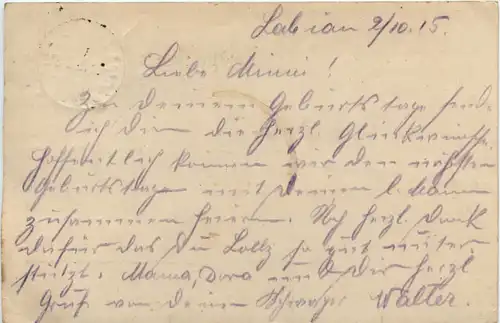 Labiau 2/10.15.
Liebe Minni!
Zu deinem Geburtstage sende
ich dir die herzl. Glückwünsche
Hoffentlich können wir den nächsten
Geburtstage mit deinem l. Mann
zusammen feiern. Noch herzl. Dank
dafür das du Lolly so gut unter-
stützt. Mama, Dora und Dir herzl
Gruß von deinem Schwager Walter.